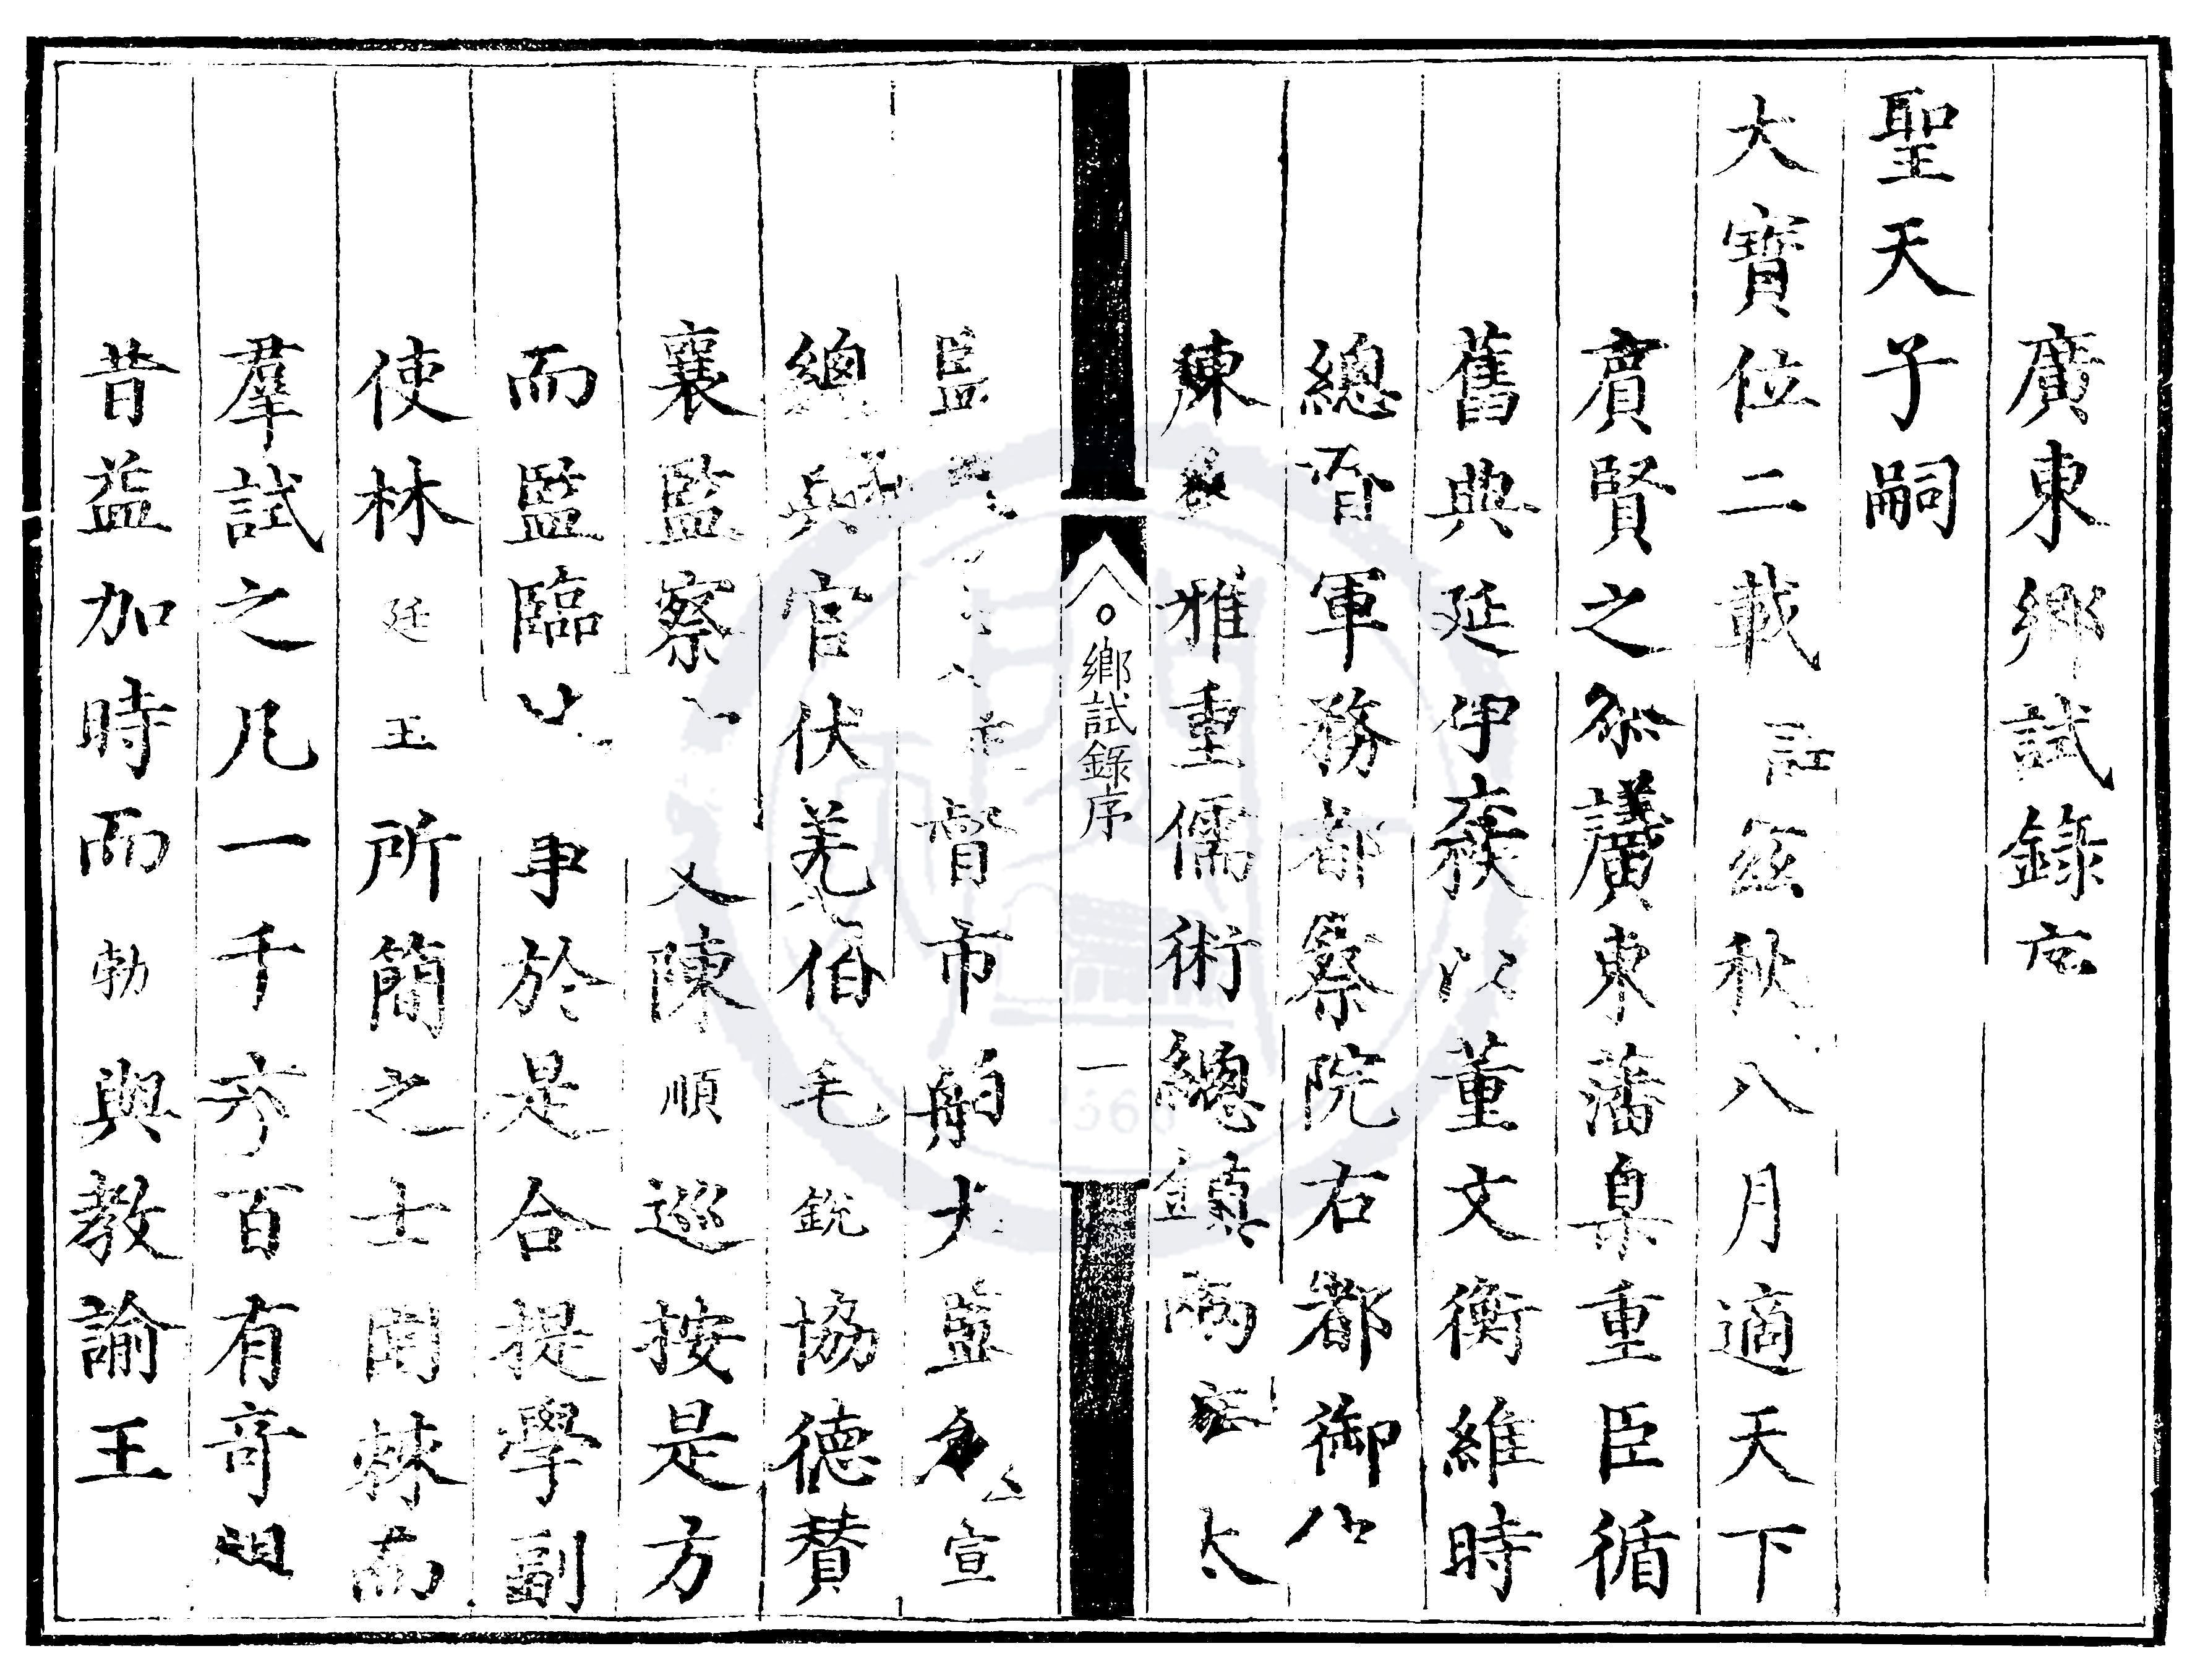 廣東鄉試錄
聖天子嗣
大寶位二載茲秋八月適天下
賓賢之議廣東藩臬重臣循
舊典延伊以董文衡維時
總督軍務都察院右都御
雅重儒術總鎮兩太
監督市舶太監宣
總兵官伏羌伯毛銳協德贊
襄監察陳順巡按是方
而監臨事於是合提學副
使林廷玉所簡之士圍棘而
羣試之凡一千六百有奇
昔益加時而勃與教諭王
鄉試錄序
一